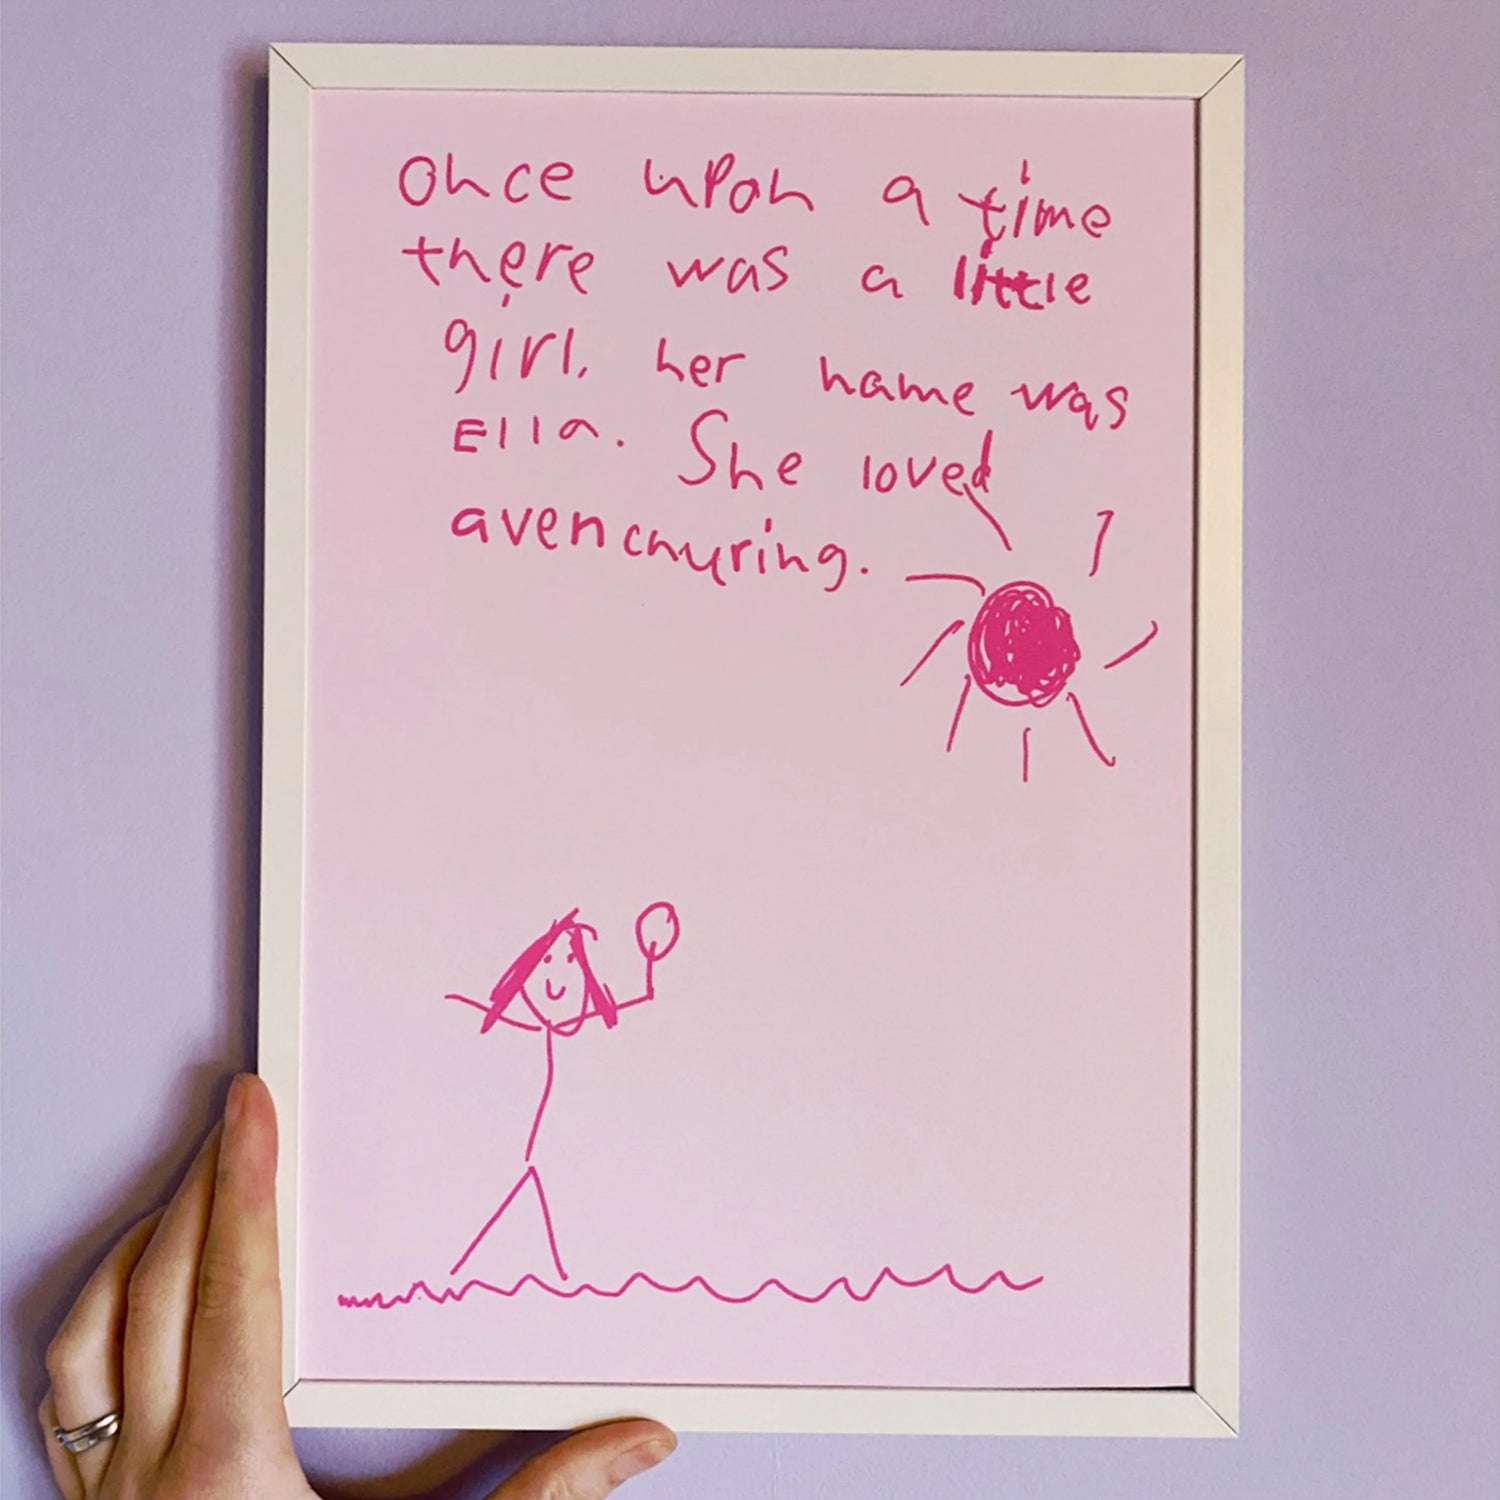 Once upon a time
there was a little
girl, her name was
Ella. She loved
avenchuring.